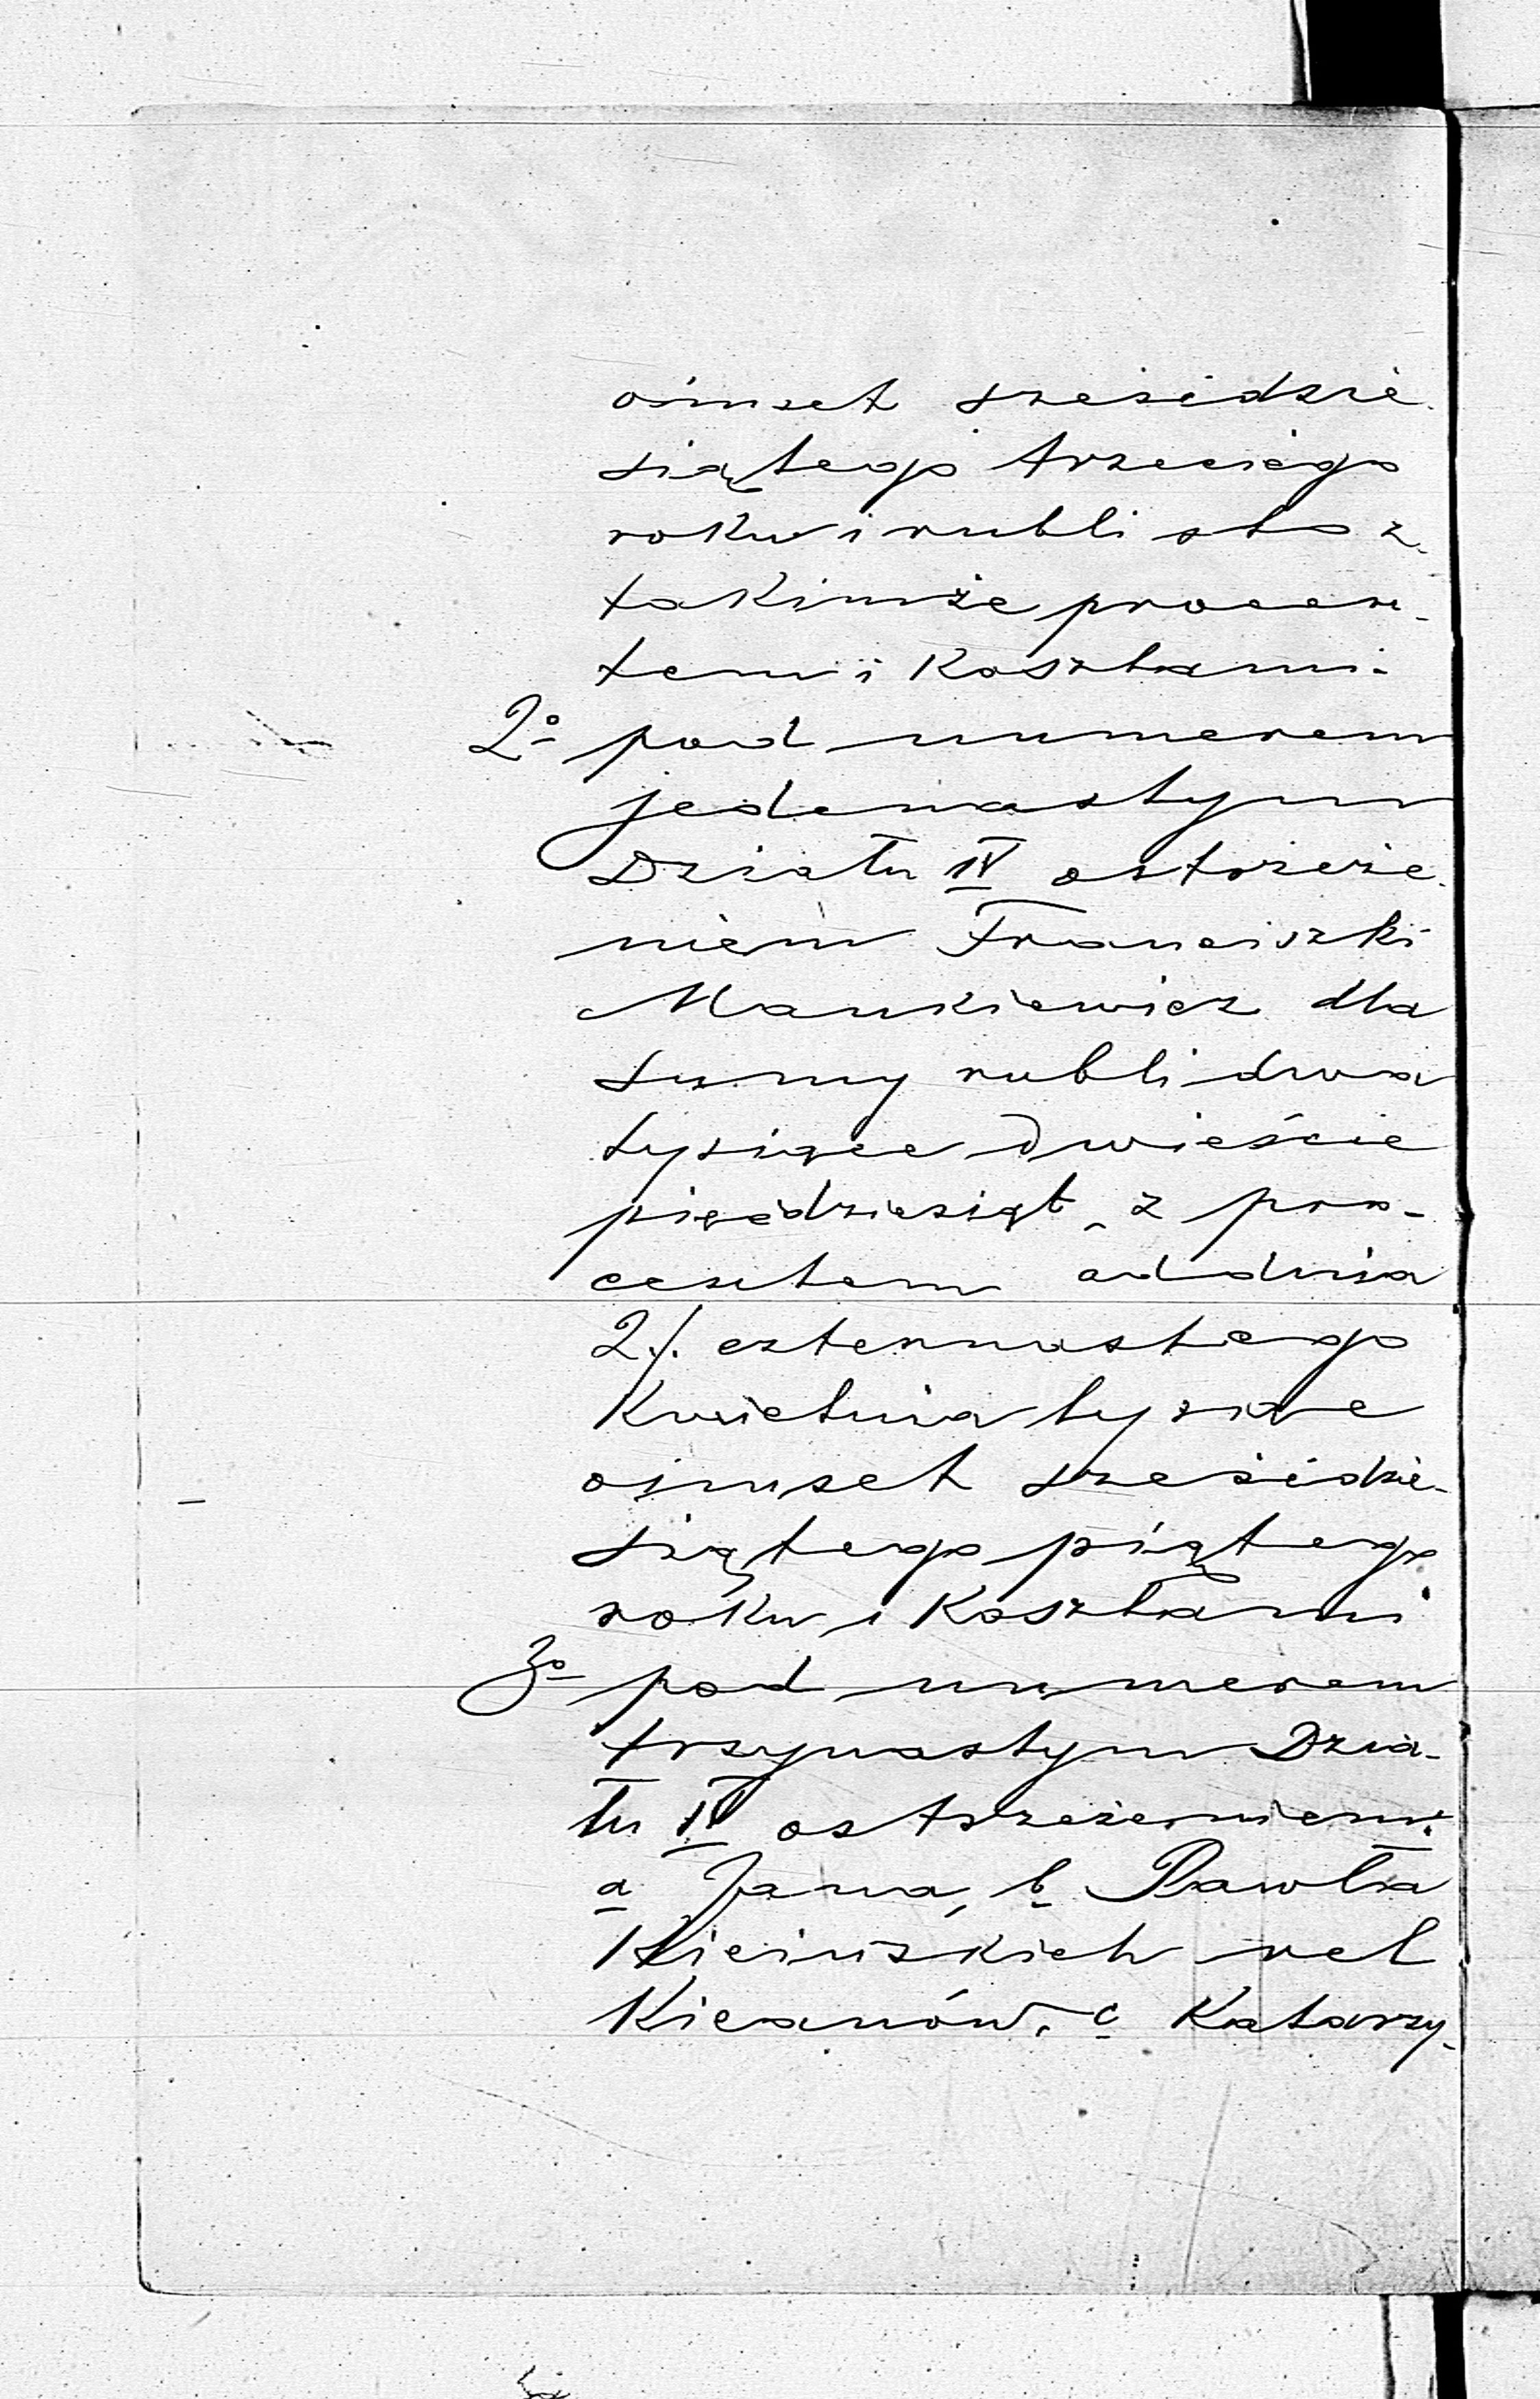 ośmset sześćdzie-
siątego trzeciego
roku i rubli sto z
takimże procen-
tem i Kosztami.
2o pod numerem
jedenastym
Działu IV ostrzeże-
niem Franciszki
Mankiewicz dla
sumy rubli dwa
tysiące dwieście
pięćdziesiąt, z pro-
centem od dnia
2/. czternastego
Kwietnia tysiące
ośmset sześćdzie-
siątego piątego
roku i Kosztami
3o pod numerem
trzynastym Dzia-
łu IV ostrzeżeniem:
a Jana, b Pawła
Kicińskich vel
Kicanów, c Katarzy-